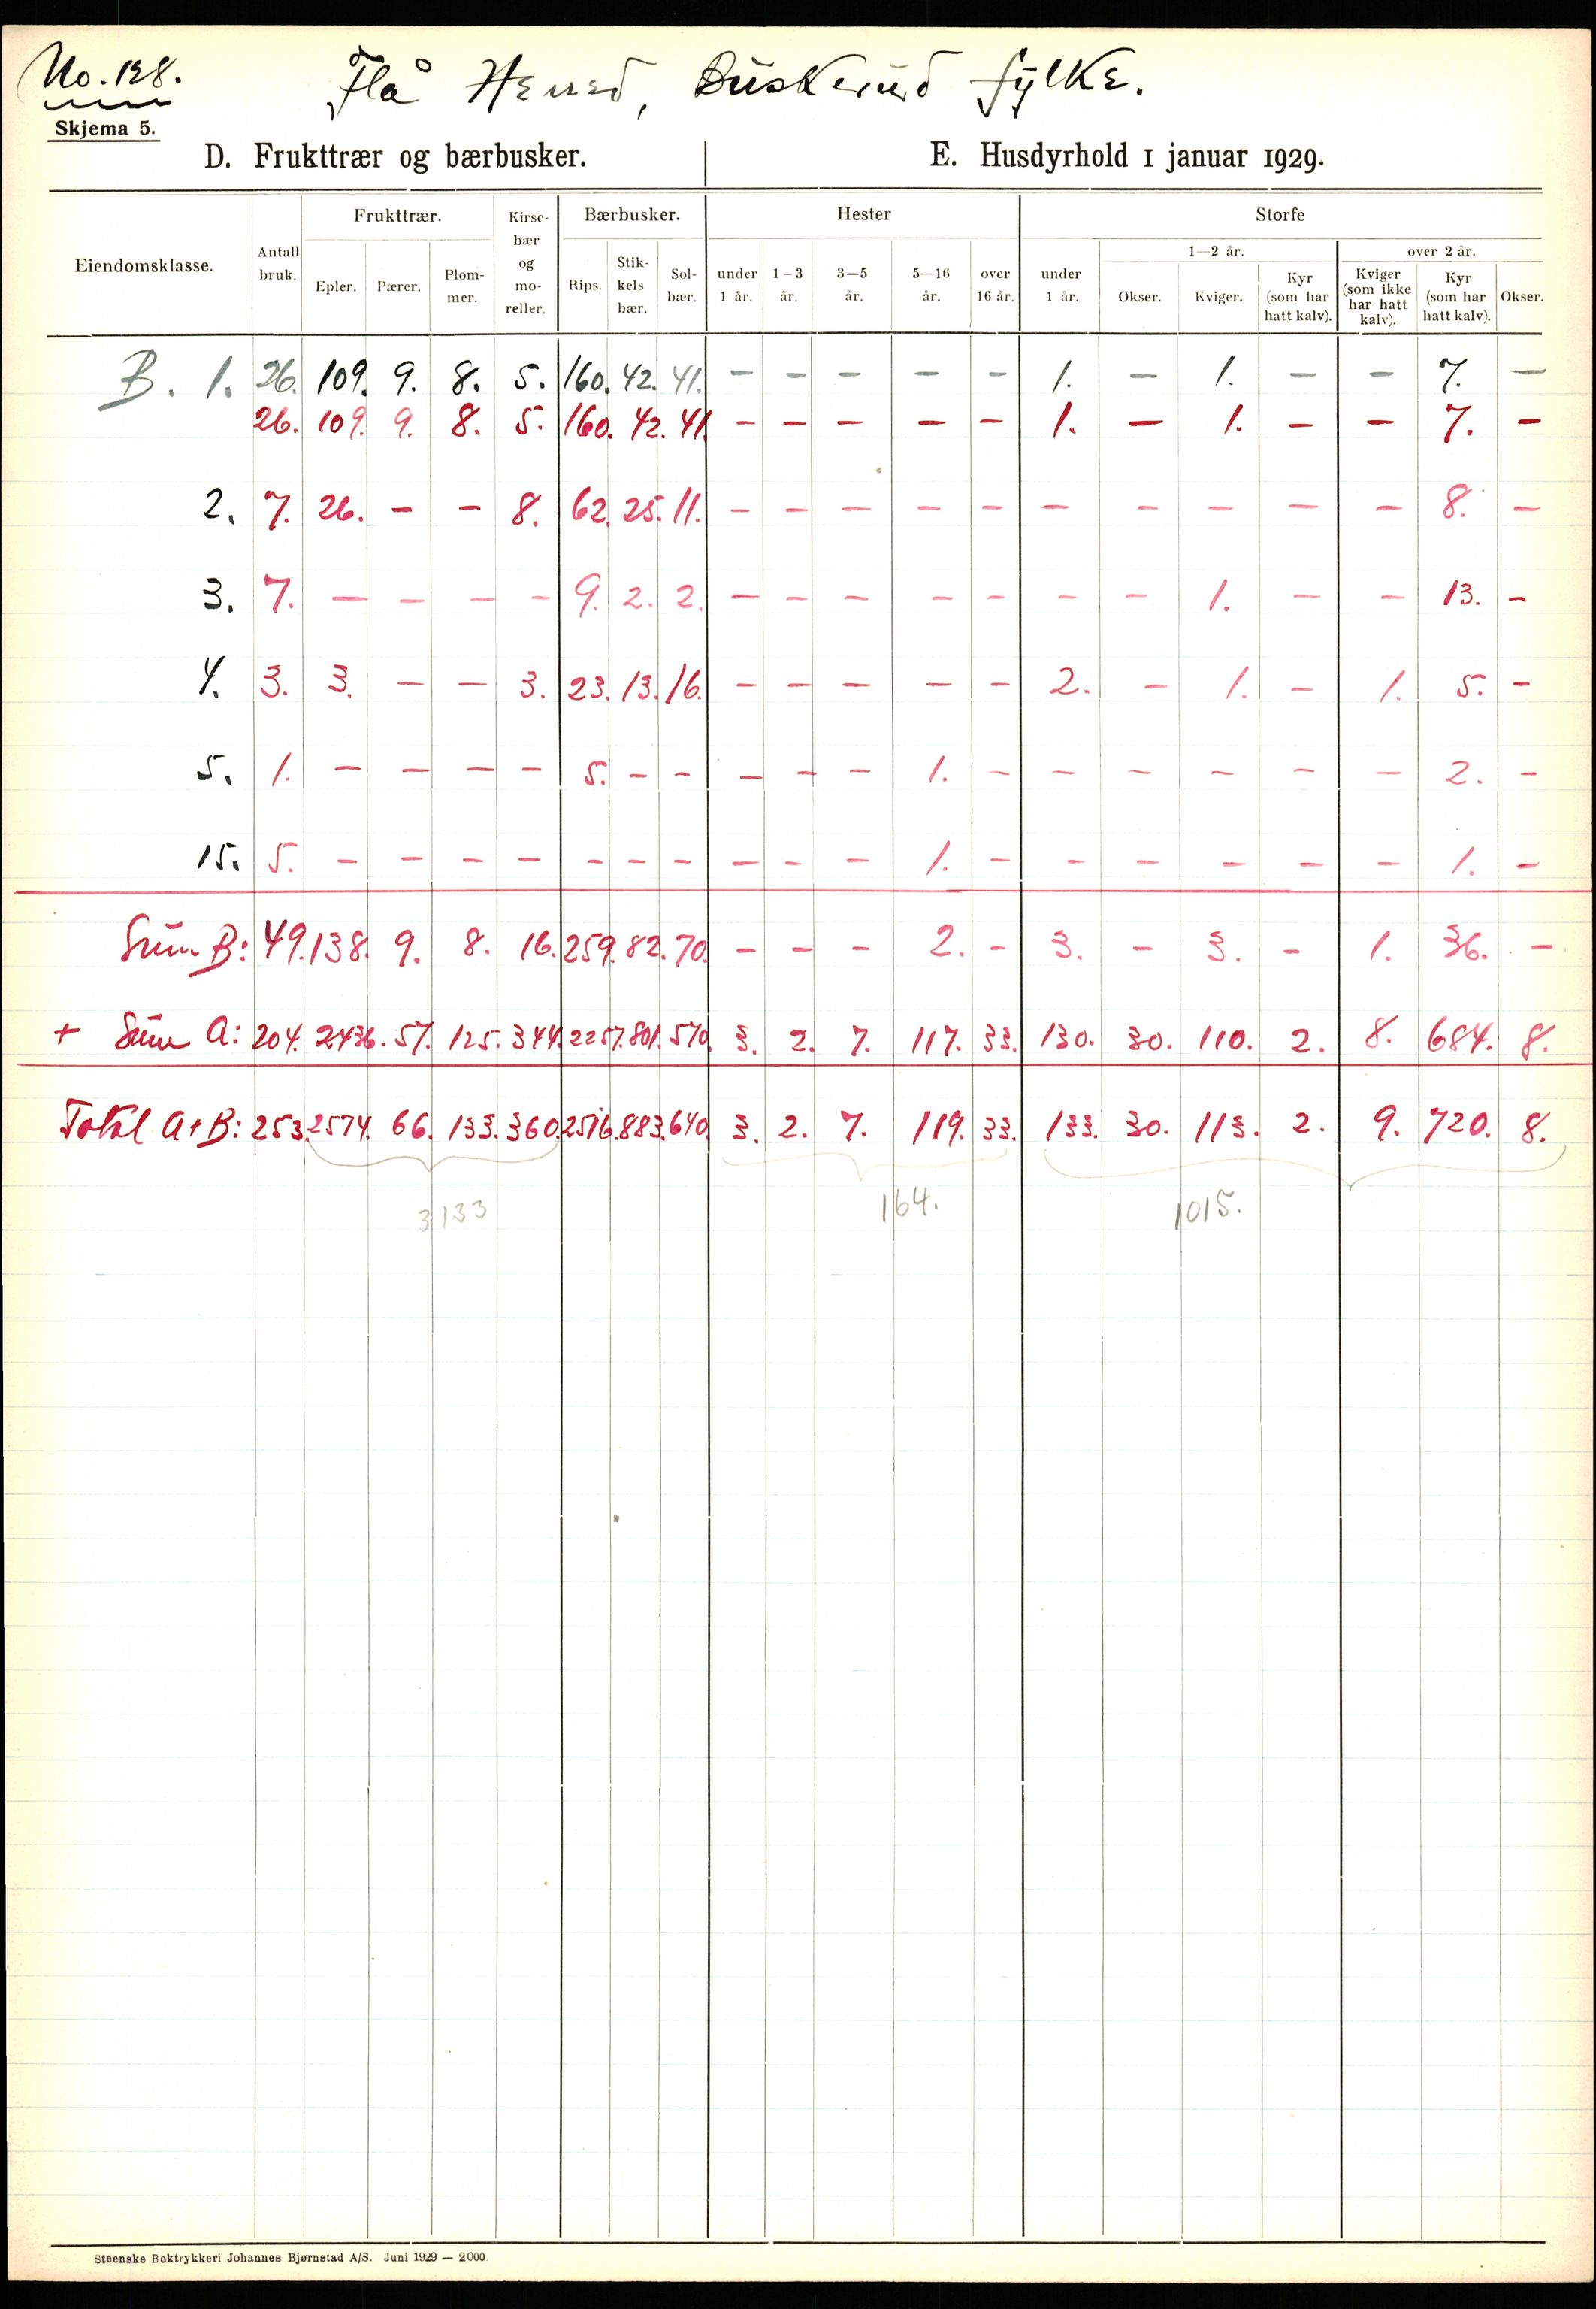 No. 128.
Flå Herred, Buskerud fylke.
Skjema 5.
D. Frukttrær og bærbusker.
E. Husdyrhold 1 januar 1929.
Eiendomsklasse. Antall bruk. Frukttrær. Kirsebær og moreller. Bærbusker. Hester Storfe
1—2 år. over 2 år.
Epler. Pærer. Plommer. Rips. Stikkels bær. Solbær. under 1 år. 1–3 år. 3—5 år. 5—16 år. over 16 år. under 1 år. Okser. Kviger. Kyr (som har hatt kalv). Kviger (som ikke har hatt kalv). Kyr (som har hatt kalv). Okser.
B. 1. 26. 109. 9. 8. 5. 160. 42. 41. — — — — — 1. — 1. — — 7. —
26. 109. 9. 8. 5. 160. 42. 41. — — — — — 1. — 1. — — 7. —
2. 7. 26. — — 8. 62. 25. 11. — — — — — — — — — — 8. —
3. 7. — — — — 9. 2. 2. — — — — — — — 1. — — 13. —
4. 3. 3. — — 3. 23. 13. 16. — — — — — 2. — 1. — 1. 5. —
5. 1. — — — — 5. — — — — — 1. — — — — — — 2. —
15. 5. — — — — — — — — — — 1. — — — — — — 1. —
Sum B: 49. 138. 9. 8. 16. 259. 82. 70. — — — 2. — 3. — 3. — 1. 36. —
+ Sum A: 204. 2436. 57. 125. 344. 2257. 801. 570. 3. 2. 7. 117. 33. 130. 30. 110. 2. 8. 684. 8.
Total A+B: 253. 2574. 66. 133. 360. 2516. 883. 640. 3. 2. 7. 119. 33. 133. 30. 113. 2. 9. 720. 8.
3133 164. 1015.
Steenske Boktrykkeri Johannes Bjørnstad A/S. Juni 1929 — 2000.